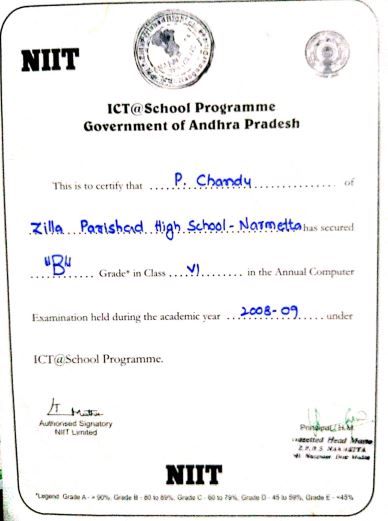 NIIT
ICT@School Programme
Government of Andhra Pradesh
This is to certify that P. Chandu of
Zilla Parishad High School - Narmetta has secured
"B" Grade* in Class VI in the Annual Computer
Examination held during the academic year 2008-09 under
ICT@School Programme.
Authorised Signatory
NIIT Limited
Principal / H.M.
Gazetted Head Master
Z.P.H.S NARMETTA
NIIT
*Legend Grade A - > 90%, Grade B - 80 to 89%, Grade C - 60 to 79%, Grade D - 45 to 59%, Grade E - <45%